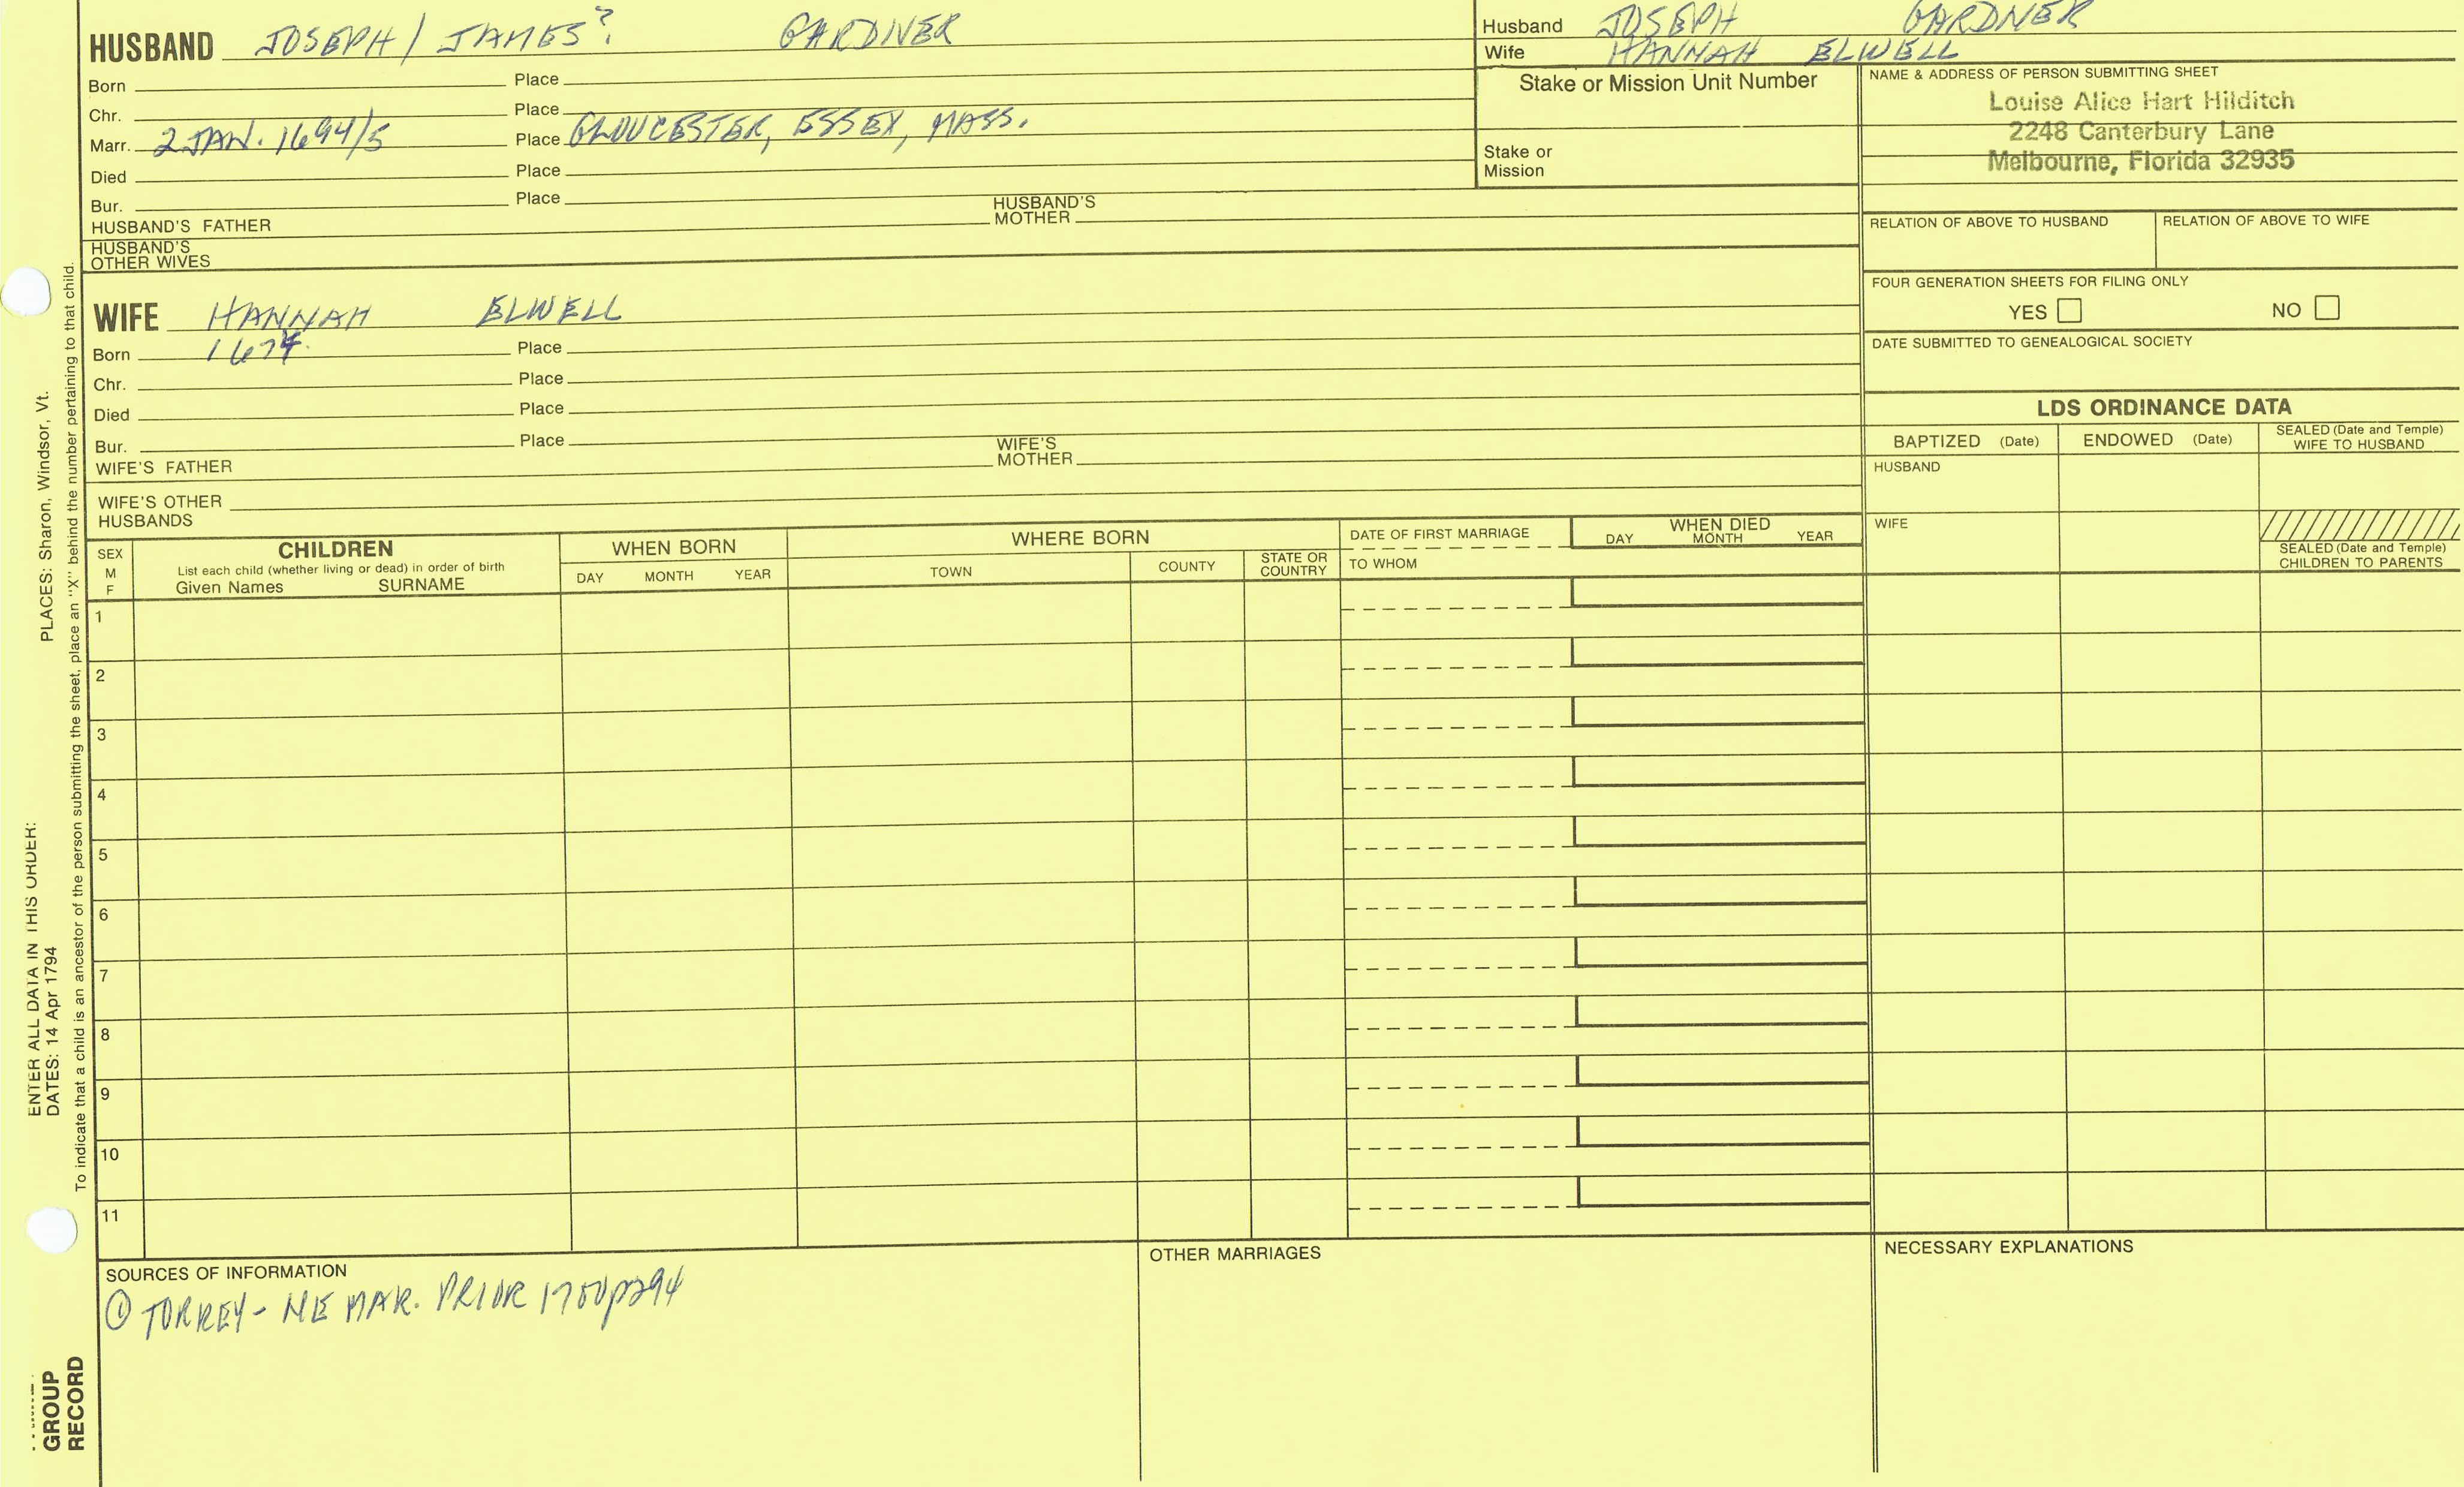 HUSBAND JOSEPH / JAMES? GARDNER
Born Place
Chr. Place
Marr. 2 JAN. 1694/5 Place GLOUCESTER, ESSEX, MASS.
Died Place
Bur. Place
HUSBAND'S FATHER HUSBAND'S MOTHER
HUSBAND'S OTHER WIVES
Husband JOSEPH GARDNER
Wife HANNAH ELWELL
Stake or Mission Unit Number
Stake or Mission
NAME & ADDRESS OF PERSON SUBMITTING SHEET
Louise Alice Hart Hilditch
2248 Canterbury Lane
Melbourne, Florida 32935
RELATION OF ABOVE TO HUSBAND RELATION OF ABOVE TO WIFE
FOUR GENERATION SHEETS FOR FILING ONLY
YES NO
DATE SUBMITTED TO GENEALOGICAL SOCIETY
WIFE HANNAH ELWELL
Born 1674. Place
Chr. Place
Died Place
Bur. Place
WIFE'S FATHER WIFE'S MOTHER
WIFE'S OTHER HUSBANDS
LDS ORDINANCE DATA
BAPTIZED (Date) ENDOWED (Date) SEALED (Date and Temple) WIFE TO HUSBAND
HUSBAND
WIFE
SEALED (Date and Temple) CHILDREN TO PARENTS
SEX M F
CHILDREN
List each child (whether living or dead) in order of birth
Given Names SURNAME
WHEN BORN
DAY MONTH YEAR
WHERE BORN
TOWN COUNTY STATE OR COUNTRY
DATE OF FIRST MARRIAGE
TO WHOM
WHEN DIED
DAY MONTH YEAR
1
2
3
4
5
6
7
8
9
10
11
SOURCES OF INFORMATION
① TORREY - NE MAR. PRIOR 1700 p294
OTHER MARRIAGES
NECESSARY EXPLANATIONS
ENTER ALL DATA IN THIS ORDER:
DATES: 14 Apr 1794 PLACES: Sharon, Windsor, Vt.
To indicate that a child is an ancestor of the person submitting the sheet, place an "X" behind the number pertaining to that child.
GROUP
RECORD